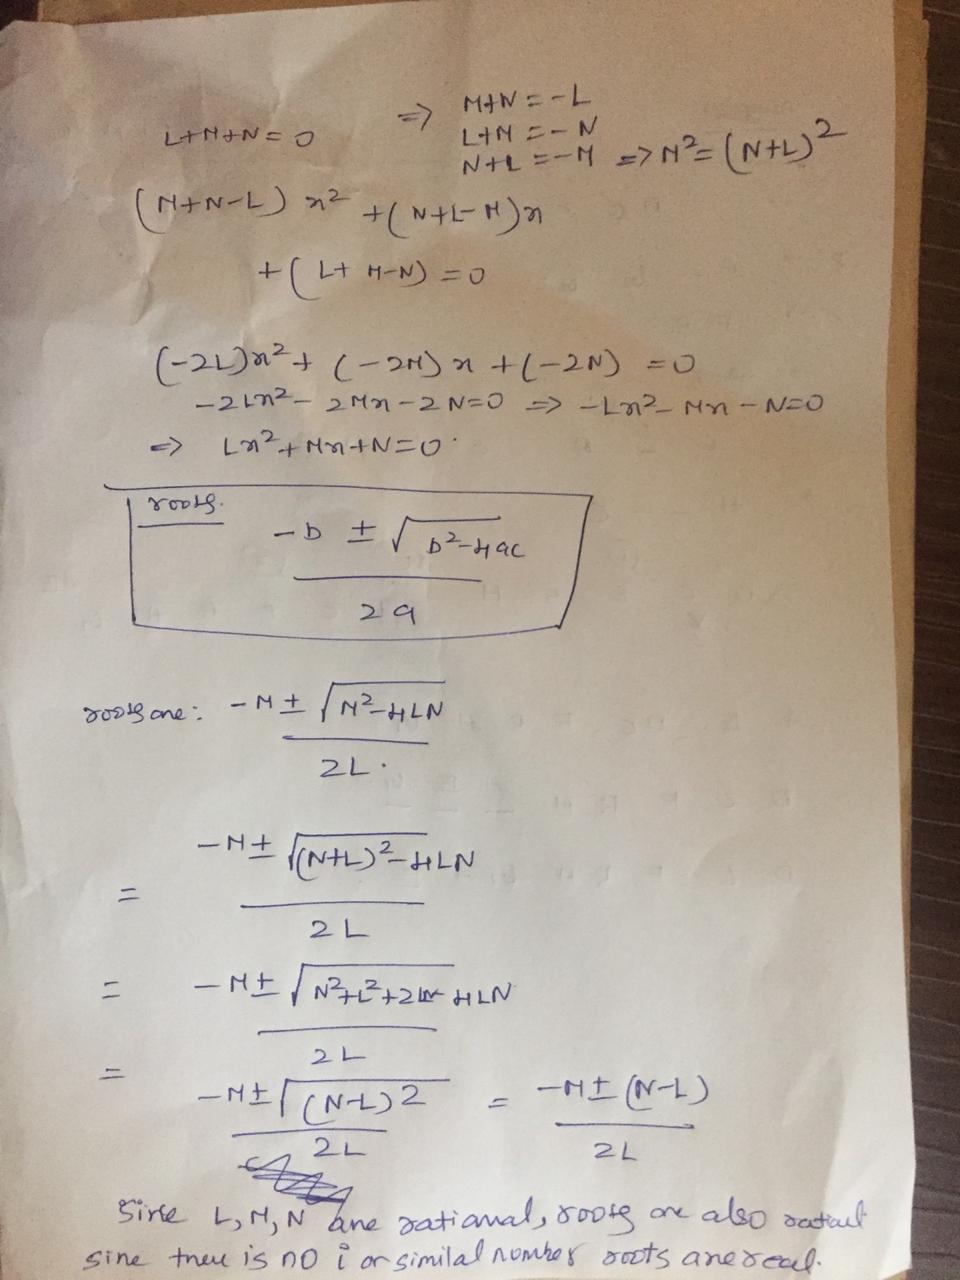 L+M+N=0 => M+N=-L
L+M=-N
N+L=-M => M²=(N+L)²
(M+N-L)x²
+(N+L-M)x
+(L+M-N)=0
(-2L)x²+(-2M)x+(-2N)=0
-2Lx²-2Mx-2N=0 => -Lx²-Mx-N=0
=> Lx²+Mx+N=0.
roots.
-b ± √b²-4ac
2a
roots are: -M ± √M²-4LN
2L.
-M ± √(N+L)²-4LN
=
2L
= -M ± √N²+L²+2LN-4LN
2L
= -M ± √(N-L)2 = -M ± (N-L)
2L 2L
Sinse L, M, N are rational, roots are also
sine there is no i or similal number roots are real.